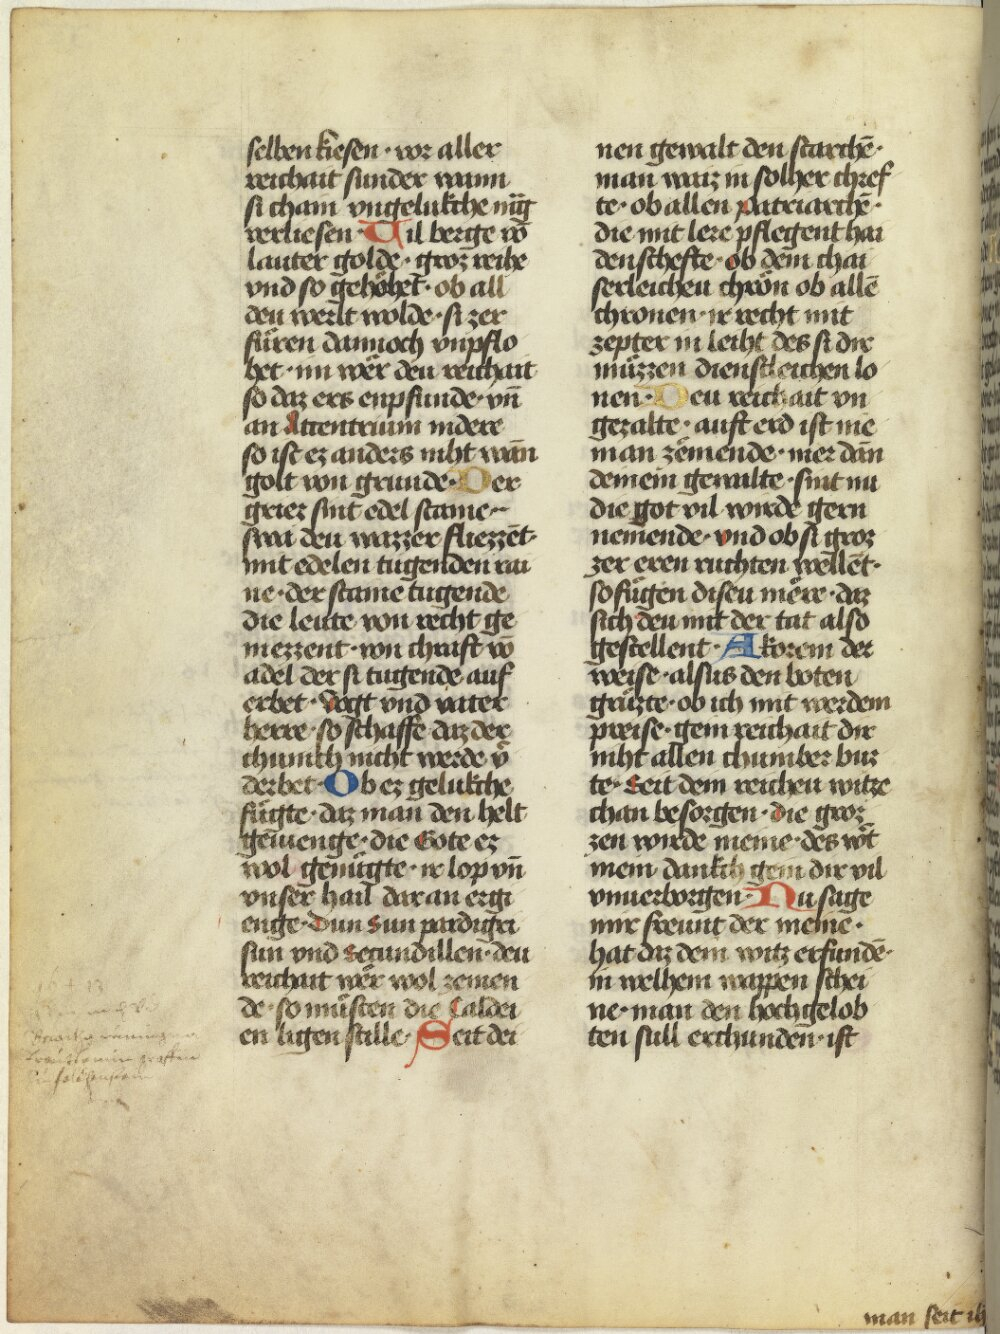 selben kiesen · vor aller
reichait sunder wann
si chain vngelukche mg̅
verliesen · Vil berge vo̅
lauter golde · groz reihe
vnd so gehöhet · ob all
den werlt wolde · si zer
fuͤren dannoch vnpflo
het · nu weͤr deu reichait
so daz ers enpfunde · vn̅
an Attentrium nidere
so ist ez anders niht wan̅
golt von grunde · Der
griez sint edel staine ·
swa den wazzer fliezzent ·
mit edelen tugenden rai
ne · der staine tugende
die leute von recht ge
niezzent · von chraft vo̅
adel der si tugende auf
erbet · Vogt vnd vater
herre · so schaffe daz der
chumch nicht werde v̊
derbet · Ob ez gelukche
fuͤgte · daz man den helt
gewenge · die Gote ez
wol genuͤgte · ir lop vn̅
vnser hail dar an ergi
enge · Sun Sun parcligrei
sun vnd Secundillen · deu
reichait weͤr wol zemen
de · so muͤsten die Caldei
en ligen stille · Seit dei
nen gewalt den starche̅ ·
man waiz in solher chref
te · ob allen patriarche̅ ·
die mit lere pflegent hai
denschefte · ob dem chai
serleichen chron ob alle̅
chronen · ir recht mit
zepter in leiht des si dir
muͤzzen dienstleichen lo
nen · Deu reichait vn
gezalte · auft erd ist nie
man zemende · mer dan̅
deinem gewalte · sint nu
die got vil wirde gern
nemende · vnd ob si groz
zer eren ruchten wellent ·
so fuͤgen diseu meͤre · daz
sich deu mit der tat also
gestellent · Akorein der
weise · alsus den boten
gruͤzte · ob ich mit werdem
preise · gein reichait dir
niht allen chumber buz
te · Seit dem reicheu witze
chan besorgen · die groz
zen wirde meine · des wo̊t
mein dankch gein dir vil
vnuerborgen · Nu sage
mir freunt der meine ·
hat daz dein witz erfunde̅ ·
in welhem wappen schei
ne · man den hochgelob
ten sull erchunden · ist
man seit